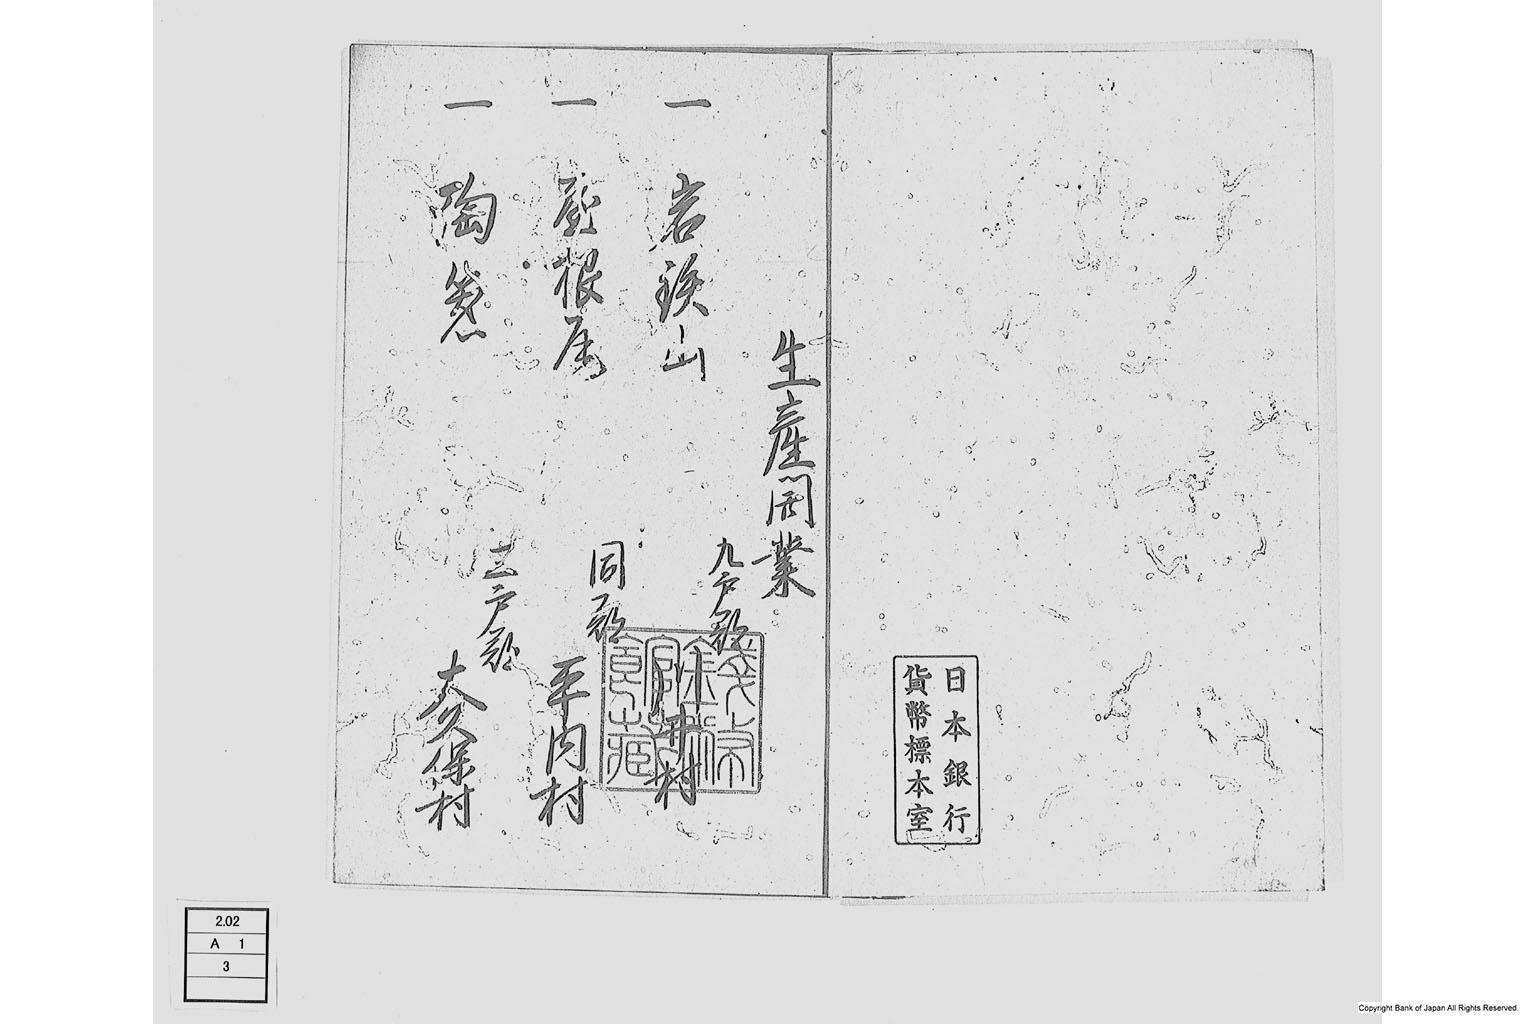 日本銀行
貨幣標本室
生産開業
一 岩鉄山
九戸郡
井村
一
根屋
同郡
平内村
一 陶
三戸郡
大久保村
銭幣館
蔵
2.02
A 1
3
Copyright Bank of Japan All Rights Reserved.